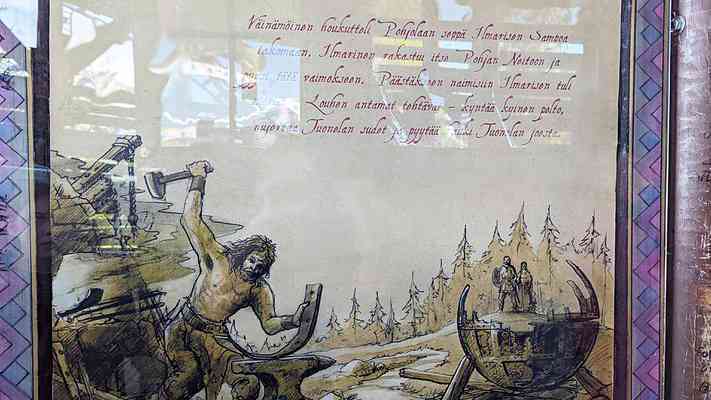 Väinämöinen houkutteli Pohjolaan seppä Ilmarisen Sampoa
takomaan. Ilmarinen rakastui itse Pohjan Neitoon ja
tätä vaimokseen. Päästäkseen naimisiin Ilmarisen tuli
Louhen antamat tehtävät – kyntää kyinen pelto,
Tuonelan sudet ja pyytää hauki Tuonelan joesta.